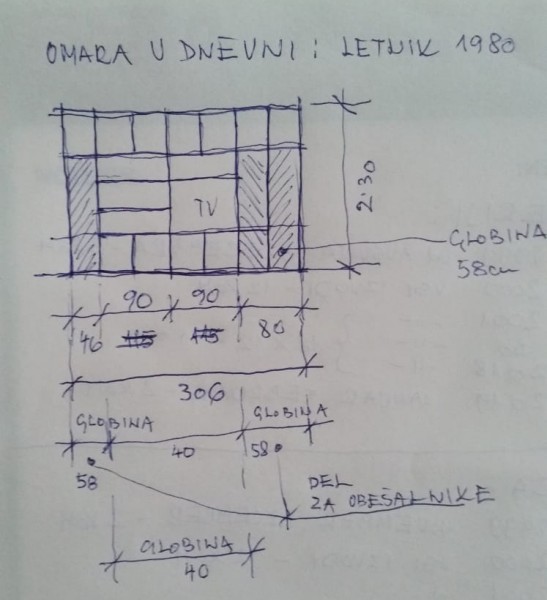 OMARA V DNEVNI : LETNIK 1980
TV
2.30
GLOBINA
58cm
90 90
46 115 115 80
306
GLOBINA GLOBINA
40 58
58
DEL
ZA OBEŠALNIKE
GLOBINA
40